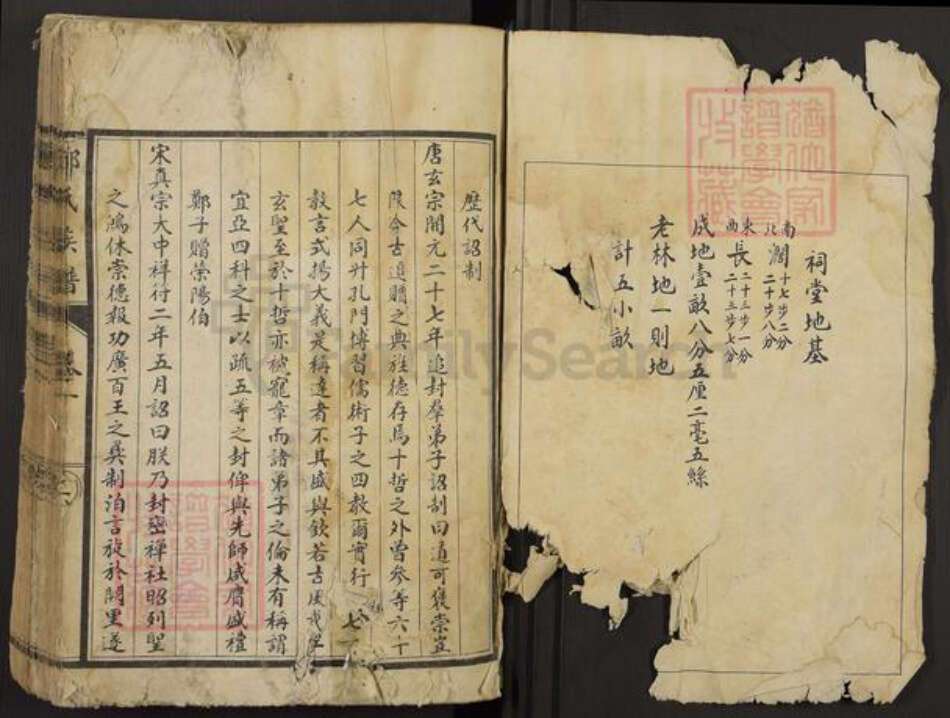 祠堂地基
南北
濶
十七步二分
二十步八分
東西
長
二十三步一分
二十三步七分
成地壹畝八分五厘二毫五絲
老林地一則地
計五小畝
歷代詔制
唐玄宗開元二十七年追封羣弟子詔制曰道可褒崇豈
限今古追贈之典旌德存焉十哲之外曾參等六十
七人同升孔門博習儒術子之四教爾實行
教言式揚大義是稱達者不其盛與欽若古
玄聖至於十哲亦被寵章而諸弟子之倫未有稱謂
宜亞四科之士以疏五等之封俾與先師咸膺盛禮
鄭子贈滎陽伯
宋真宗大中祥符二年五月詔曰朕乃封巒禪社昭列聖
之鴻休崇德報功廣百王之彝制洎言旋於闕里遂
氏族譜
卷一
FamilySearch